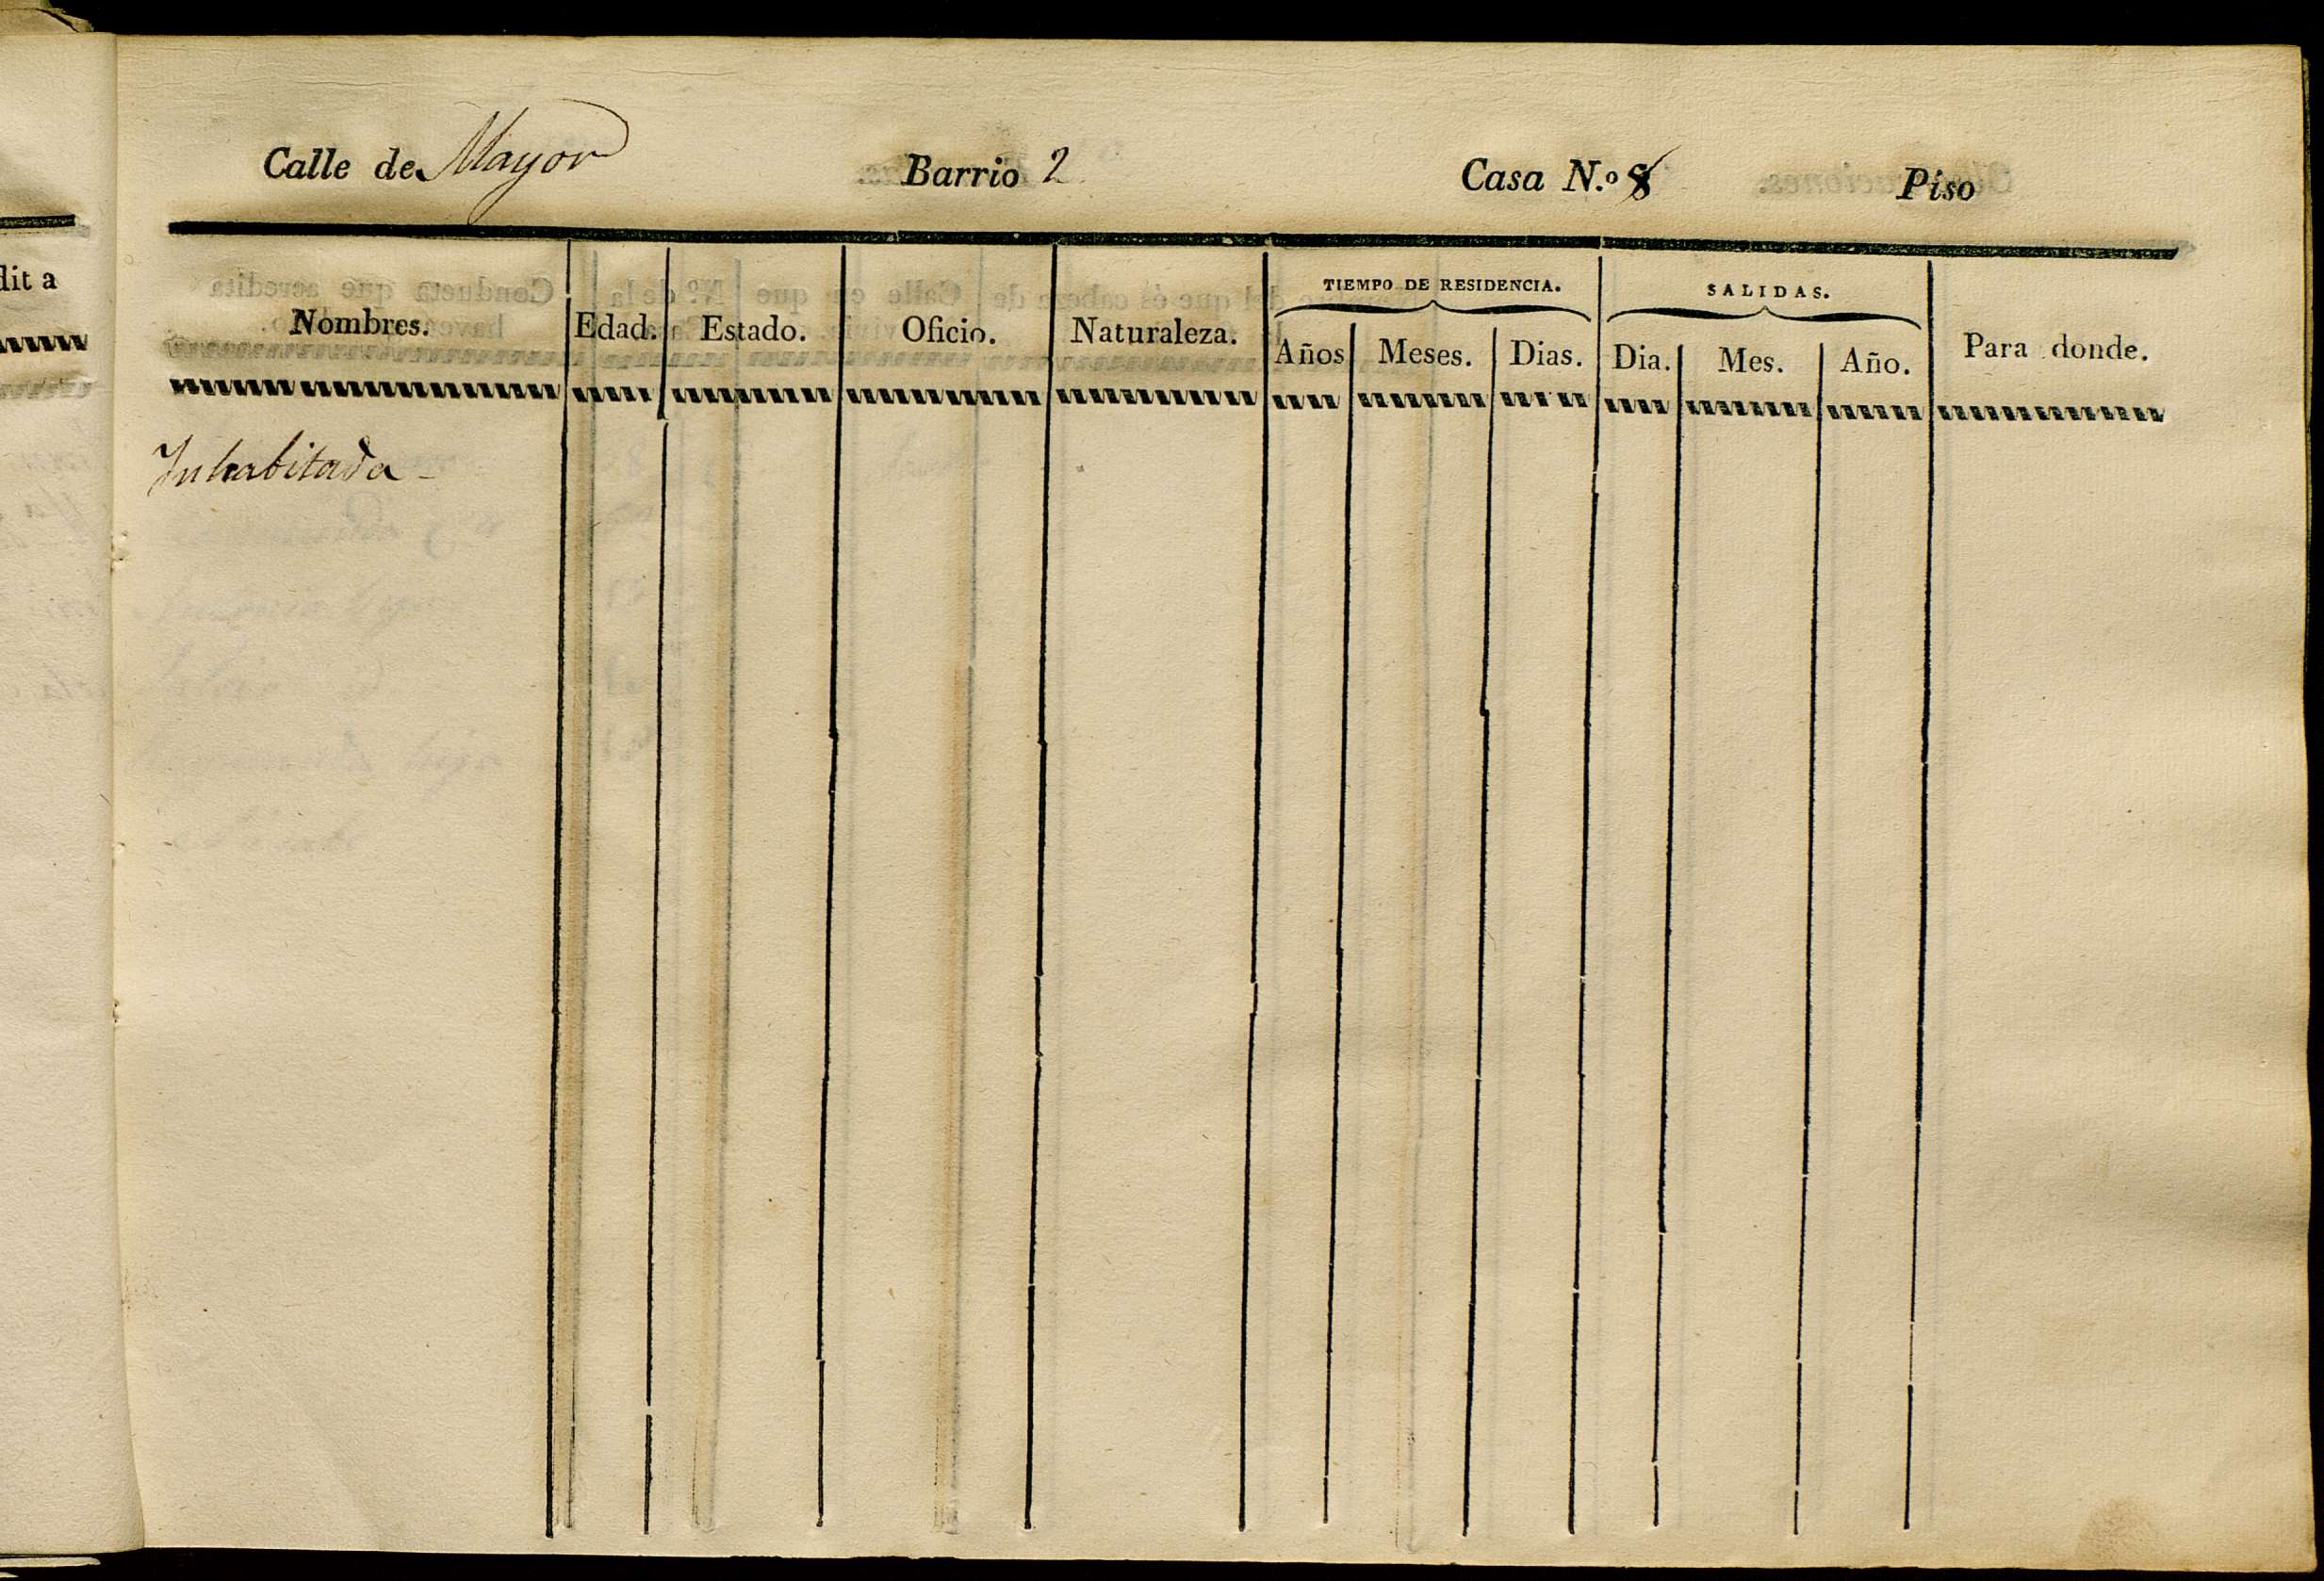 Calle de Mayor Barrio 2 Casa N.º 8 Piso
dit a
TIEMPO DE RESIDENCIA. SALIDAS.
Nombres. Edad. Estado. Oficio. Naturaleza. Años Meses. Dias. Dia. Mes. Año. Para donde.
Inhabitada -